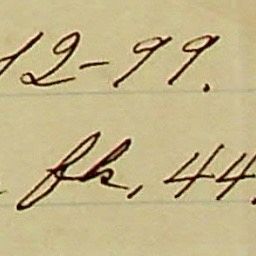 12-99.
fk, 44.